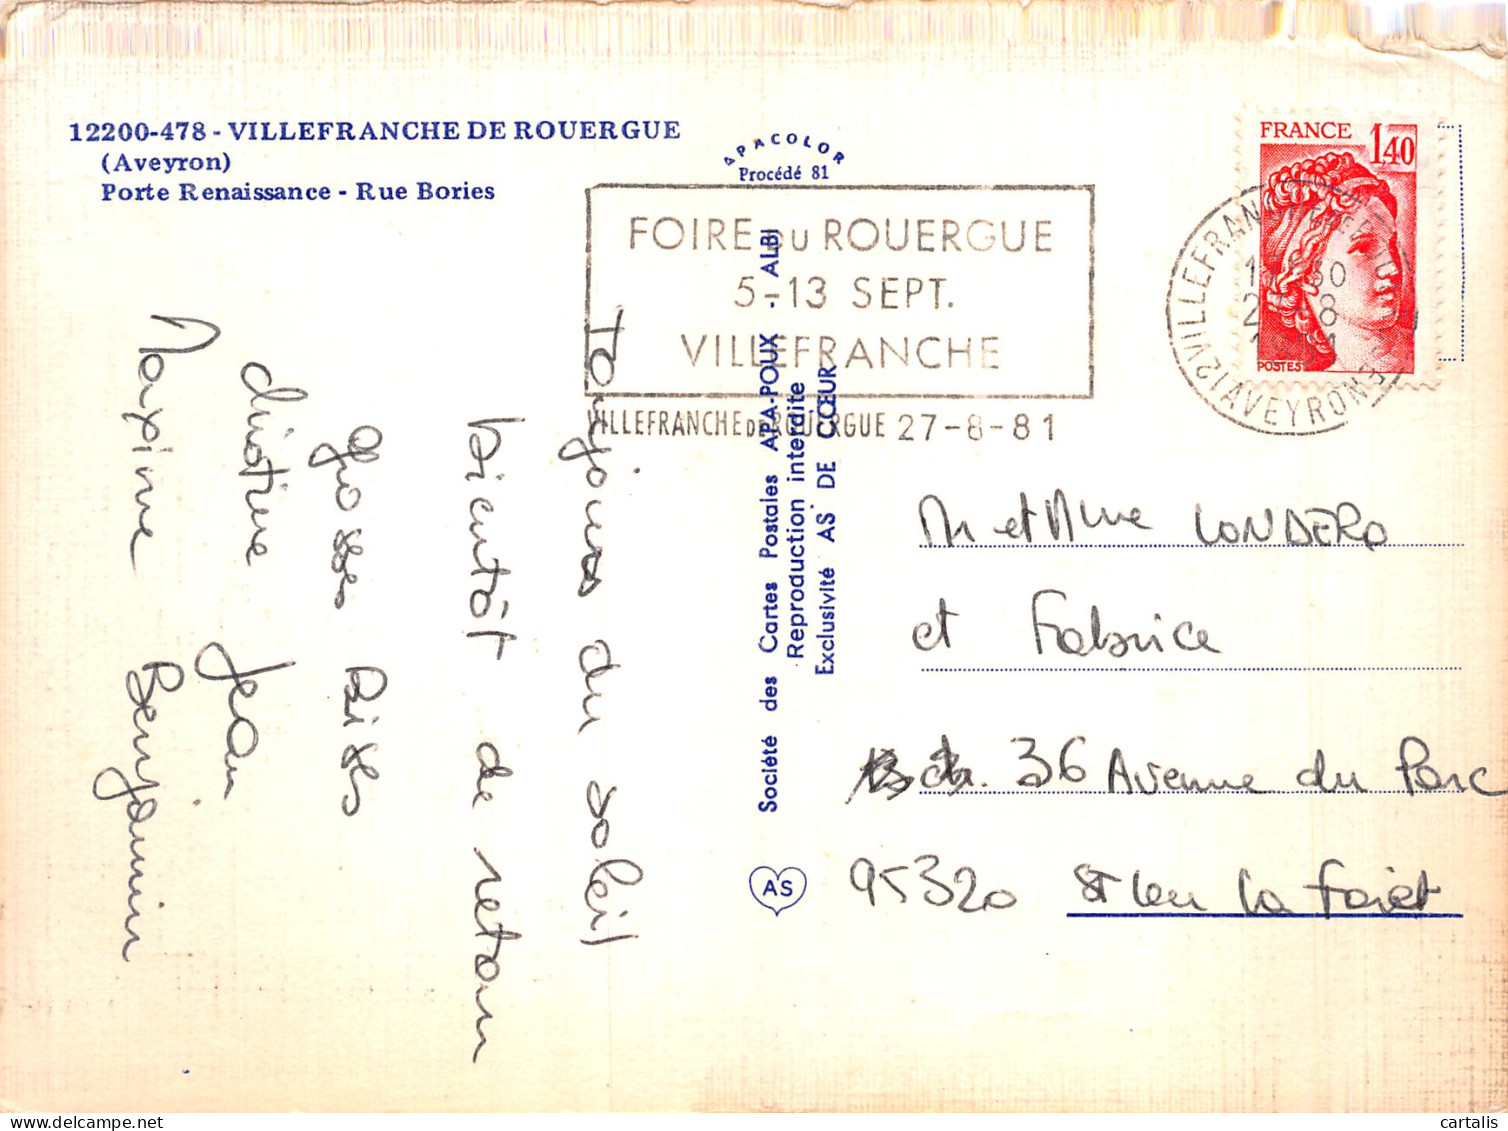 12200-478 - VILLEFRANCHE DE ROUERGUE
(Aveyron)
Porte Renaissance - Rue Bories
APACOLOR
Procédé 81
FOIRE DU ROUERGUE
5-13 SEPT.
VILLEFRANCHE
VILLEFRANCHE DE ROUERGUE 27-8-81
FRANCE 1,40
POSTES
12 VILLEFRANCHE DE ROUERGUE AVEYRON
Toujours du soleil
bientôt de retour
Grosses Bises
christine Jean
Maxime Benjamin
Société des Cartes Postales APA-POUX - ALBI
Reproduction interdite
Exclusivité AS DE CŒUR
AS
Mr et Mme LONDERO
et Fabrice
36 Avenue du Parc
95320 St Leu La Forêt
cartalis